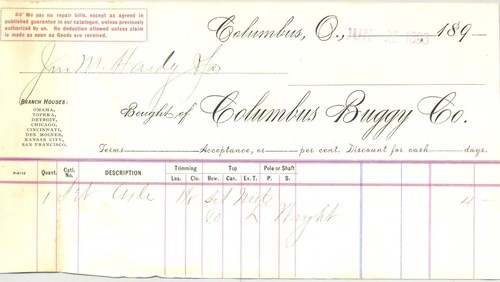 We pay no repair bills, except as agreed in
published guarantee in our catalogue, unless previously
authorized by us. No deduction allowed unless claim
is made as soon as Goods are received.
Columbus, O., 189
Jno. M. Hardy
BRANCH HOUSES:
OMAHA,
TOPEKA,
DETROIT,
CHICAGO,
CINCINNATI,
DES MOINES,
KANSAS CITY,
SAN FRANCISCO.
Bought of Columbus Buggy Co.
Terms Acceptance, or per cent. Discount for cash days.
Quant. Catl. No. DESCRIPTION Trimming Lea. Clo. Top Bow. Can. Ex. T. Pole or Shaft P. S.
1 Axle 4